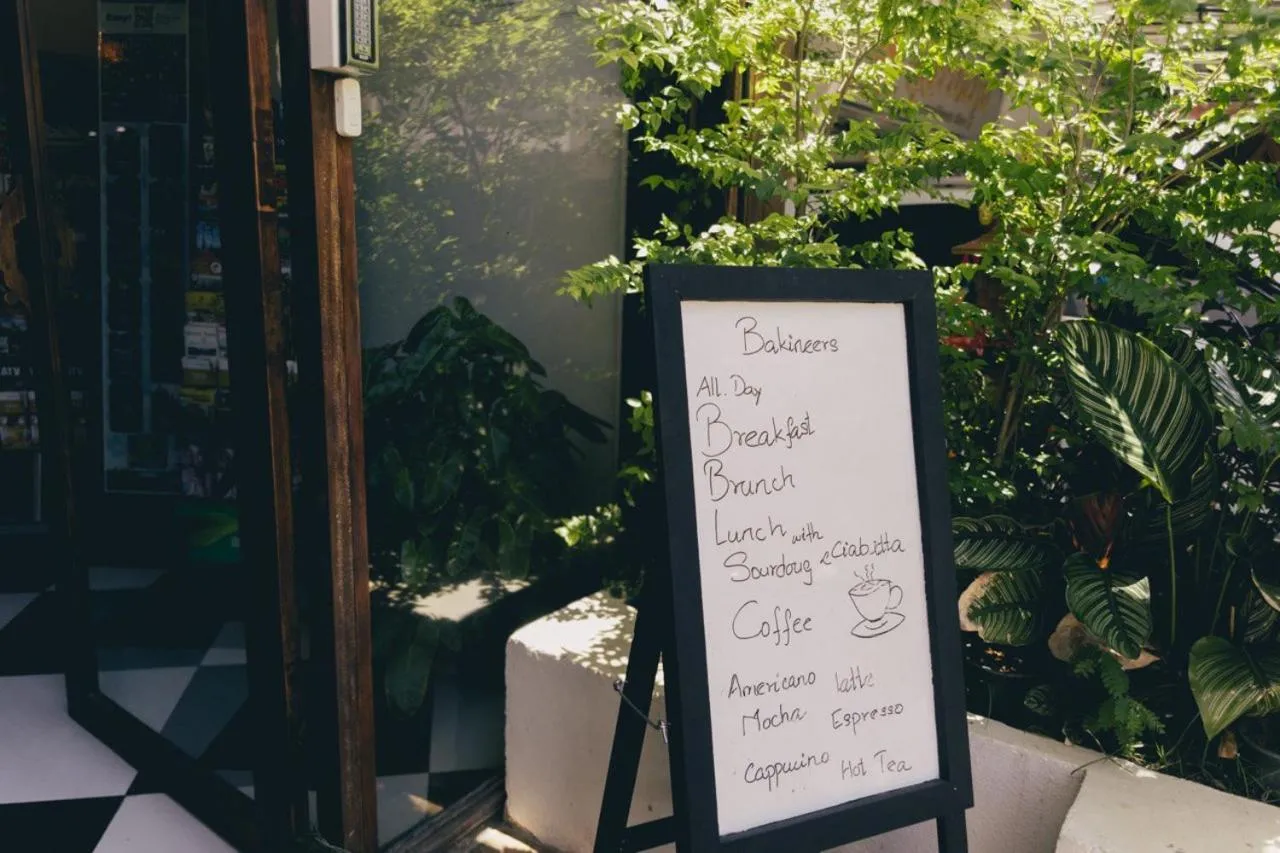 Bakineers
All. Day
Breakfast
Brunch
Lunch with
Sourdoug & Ciabatta
Coffee
Americano latte
Mocha Espresso
Cappucino Hot Tea